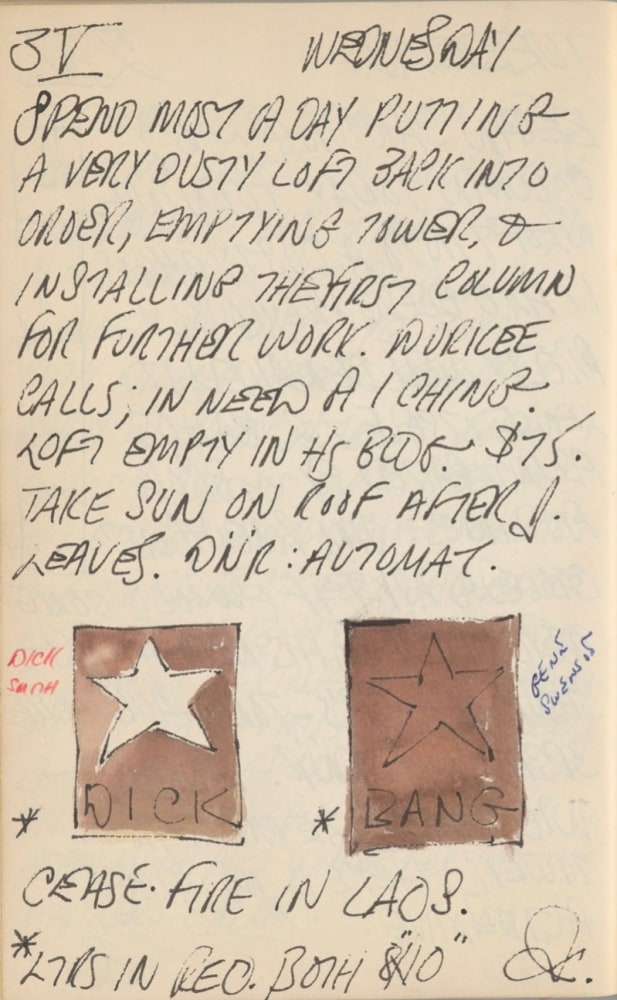 3V WEDNESDAY
SPEND MOST A DAY PUTTING
A VERY DUSTY LOFT BACK INTO
ORDER, EMPTYING TOWER, &
INSTALLING THE FIRST COLUMN
FOR FURTHER WORK. DURKEE
CALLS; IN NEED A I CHING.
LOFT EMPTY IN HS BLDG. $75.
TAKE SUN ON ROOF AFTER J.
LEAVES. DNR: AUTOMAT.
DICK
SMITH
GENE
SWENSON
* DICK * BANG
CEASE-FIRE IN LAOS.
*LTRS IN RED. BOTH $"10"